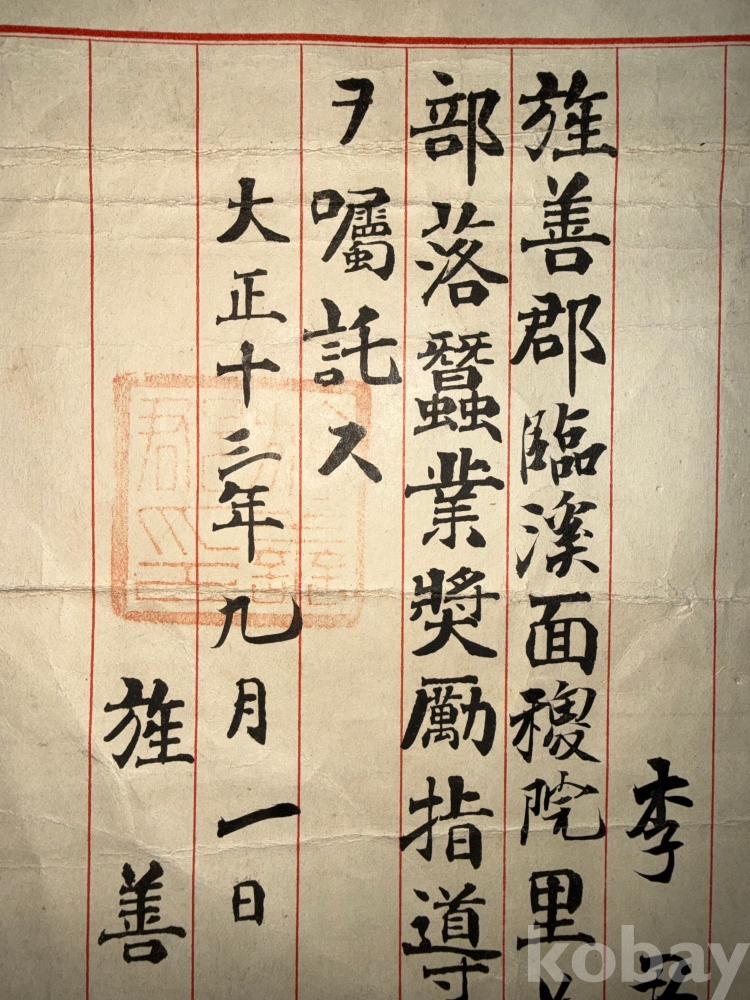 李
旌善郡臨溪面稷院里
部落蠶業奨励指導
ヲ囑託ス
大正十三年九月一日
旌善
kobay